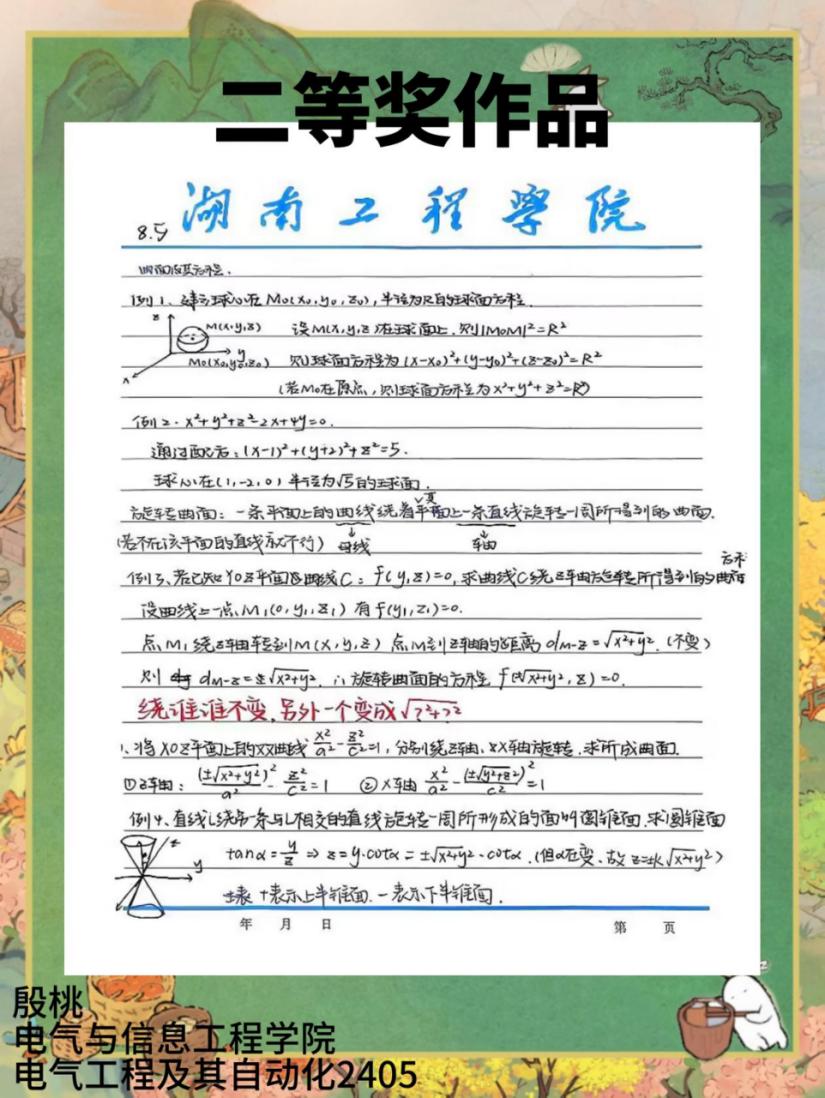 二等奖作品
湖南工程学院
8.5
曲面及其方程.
例1、建立球心在 M₀(x₀,y₀,z₀), 半径为R的球面方程.
z M(x,y,z) 设M(x,y,z)在球面上, 则|M₀M|²=R²
x y M₀(x₀,y₀,z₀) 则球面方程为 (x-x₀)²+(y-y₀)²+(z-z₀)²=R²
(若M₀在原点, 则球面方程为 x²+y²+z²=R²)
例2. x²+y²+z²-2x+4y=0.
通过配方: (x-1)²+(y+2)²+z²=5.
球心在(1,-2,0) 半径为√5的球面.
旋转曲面: 一条平面上的曲线绕着其平面上一条直线旋转一周所得到的曲面.
(若不在该平面的直线就不行) 母线 轴
例3、若已知YOZ平面曲线C: f(y,z)=0, 求曲线C绕z轴旋转所得到的曲面方程
设曲线上一点 M₁(0,y₁,z₁) 有 f(y₁,z₁)=0.
点M₁绕z轴转到M(x,y,z) 点M到z轴的距离 d_M-z=√x²+y². (不变)
则 d_M-z=±√x²+y². ∴旋转曲面的方程 f(±√x²+y²,z)=0.
绕谁谁不变, 另外一个变成√?²+?²
1、将XOZ平面上的双曲线 x²/a²-z²/c²=1, 分别绕z轴、x轴旋转. 求所成曲面.
①z轴: (±√x²+y²)²/a²-z²/c²=1 ②x轴 x²/a²-(±√y²+z²)²/c²=1
例4、直线L绕另一条与L相交的直线旋转一周所形成的面叫圆锥面. 求圆锥面
z y tanα=y/z ⇒ z=y·cotα=±√x²+y²·cotα. (但α在变、故z=±k√x²+y²)
+表示上半锥面. -表示下半锥面.
年 月 日 第 页
殷桃
电气与信息工程学院
电气工程及其自动化2405